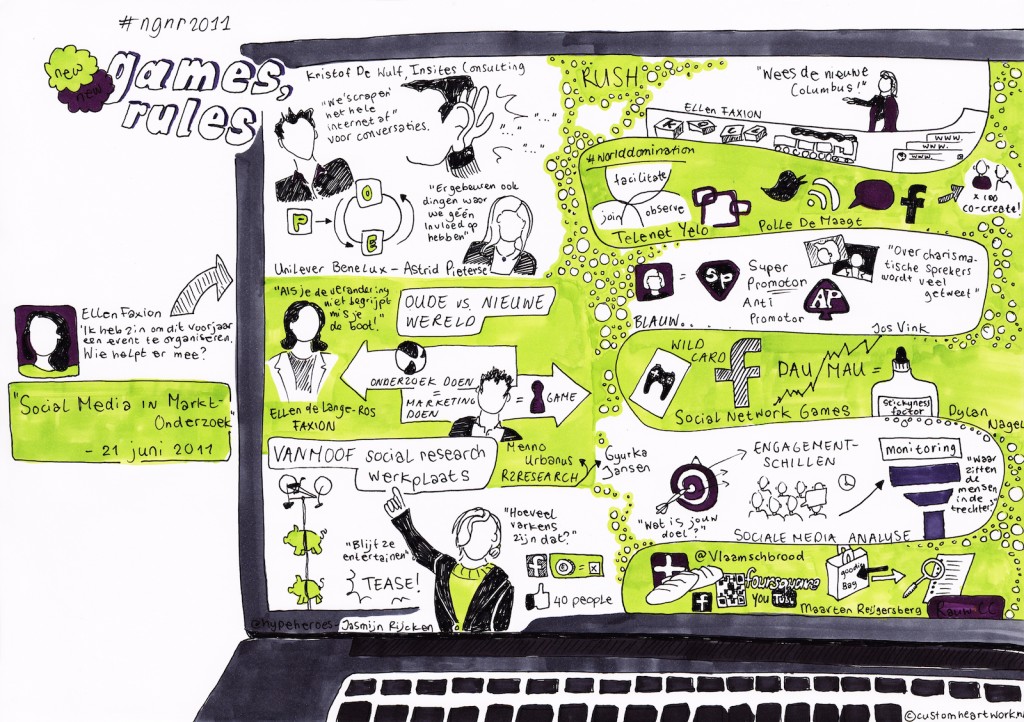 #ngnr2011
new
new
games,
rules
Kristof De Wulf, Insites Consulting
"We 'scrapen'
het hele
internet af"
voor conversaties.
"..."
"..."
"..."
P
O
E
"Er gebeuren ook
dingen waar
we géén
invloed op
hebben"
Unilever Benelux – Astrid Pieterse
Ellen Faxion
'Ik heb zin om dit voorjaar
een event te organiseren.
Wie helpt er mee?
"Social Media in Markt-
Onderzoek"
- 21 juni 2011
"Als je de verandering
niet begrijpt
mis je
de boot!"
OUDE vs. NIEUWE
WERELD
ONDERZOEK DOEN
=
MARKETING
DOEN
= GAME
Ellen de Lange-Ros
FAXION
Menno
Urbanus
R2RESEARCH
VANMOOF social research
werkplaats
"Hoeveel
varkens
zijn dat?"
"Blijf ze
entertainen"
TEASE!
f = x
40 people
@hypeheroes - Jasmijn Rijcken
RUSH
"Wees de nieuwe
Columbus!"
ELLEN FAXION
www.
www.
www.
#worlddomination
facilitate
join
observe
Telenet Yelo
f
x 100
co-create!
Polle De Maagt
= SP
Super
Promotor
Anti
Promotor
AP
"Over charisma-
tische sprekers
wordt
veel
getweet"
BLAUW...
Jos Vink
WILD
CARD
f
DAU/MAU =
stickyness
factor
Social Network Games
Dylan
Nagel
Gyurka
Jansen
ENGAGEMENT-
SCHILLEN
monitoring
"waar
zitten
de
mensen
in de
trechter"
"Wat is jouw
doel?"
SOCIALE MEDIA ANALYSE
@Vlaamschbrood
foursquare
f
You Tube
goodie
Bag
Maarten Reijgersberg
Rauw CC
©customheartwork.n